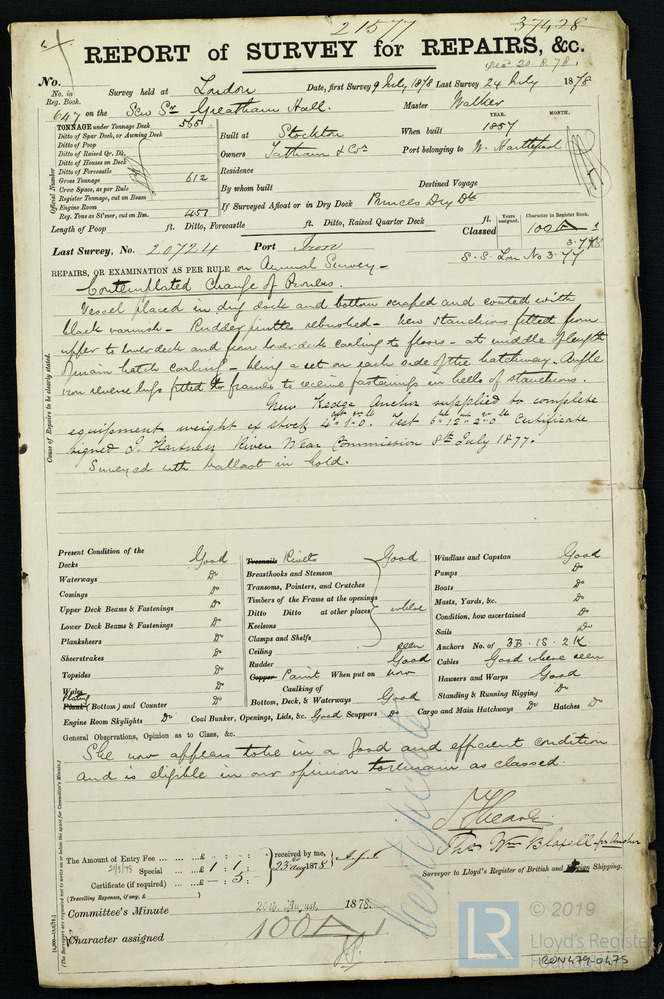 21577 37428
REPORT of SURVEY for REPAIRS, &c.
rec 20.8.78
No. Survey held at London Date, first Survey 9 July 1878 Last Survey 24 July 1878
No. in Reg. Book.
647 on the Scw Sr Greatham Hall. Master Walker
TONNAGE under Tonnage Deck 565
Ditto of Spar Deck, or Awning Deck
Ditto of Poop
Ditto of Raised Qr. Dk.
Ditto of Houses on Deck
Ditto of Forecastle
Gross Tonnage 612
Crew Space, as per Rule
Register Tonnage, cut on Beam
Engine Room
Reg. Tons as St'mer, cut on Bm. 457
Official Number
YEAR. MONTH.
Built at Stockton When built 1857
Owners Tatham & Co. Port belonging to W. Hartlepool
Residence
By whom built Destined Voyage
If Surveyed Afloat or in Dry Dock Princes Dry Dk
Length of Poop ft. Ditto, Forecastle ft. Ditto, Raised Quarter Deck ft.
Classed Years assigned. Character in Register Book.
100 A 1
3.77
Last Survey, No. 20724 Port Iron
S.S. Lon No 3.77
REPAIRS, OR EXAMINATION AS PER RULE on Annual Survey –
Contemplated Change of Owners.
Vessel placed in dry dock and bottom scraped and coated with
black varnish – Rudder pintle rebushed – New stanchions fitted from
upper to lower deck and from lower deck carling to floors – at middle of length
of main hatch carling – being a set on each side of the hatchway. Angle
iron reverse lugs fitted to frames to receive fastenings in heels of stanchions.
New Kedge Anchor supplied to complete
equipment weight ex stock 4.1.0. Test 6.12.2.0 Certificate
signed J. Hartness River Wear Commission 8th July 1877.
Surveyed with ballast in hold.
Cause of Repairs to be clearly stated.
Present Condition of the
Decks Good
Waterways Do
Comings Do
Upper Deck Beams & Fastenings Do
Lower Deck Beams & Fastenings Do
Planksheers Do
Sheerstrakes Do
Topsides Do
Wales Do
Plating
Plank (Bottom) and Counter Do
Treenails Rivets Good
Breasthooks and Stemson
Transoms, Pointers, and Crutches
Timbers of the Frame at the openings
Ditto Ditto at other places where
Keelsons
Clamps and Shelfs
Ceiling seen
Rudder Good
Copper Paint When put on now
Caulking of
Bottom, Deck, & Waterways Good
Windlass and Capstan Good
Pumps Do
Boats Do
Masts, Yards, &c. Do
Condition, how ascertained Do
Sails Do
Anchors No. of 3B. 1S. 2K.
Cables Good where seen
Hawsers and Warps Good
Standing & Running Rigging Do
Engine Room Skylights Do Coal Bunker, Openings, Lids, &c. Good Scuppers Do Cargo and Main Hatchways Do Hatches Do
General Observations, Opinion as to Class, &c.
She now appears to be in a good and efficient condition
and is eligible in our opinion to remain as classed.
(The Surveyors are requested not to write on or below the space for Committee's Minute.)
Thos Wm Blaxell for Anchor
Surveyor to Lloyd's Register of British and Foreign Shipping.
The Amount of Entry Fee ... ... ... £ : : received by me,
Special ... ... £ 1 : 1 : 23rd Aug 1878
Certificate (if required) ... ... £ – : 5 :
(Travelling Expenses, if any, £ )
Committee's Minute 20th August 1878.
Character assigned 100 A 1
Certificate
LR © 2019
Lloyd's Register
Foundation
IRON479-0475